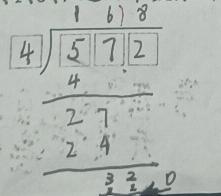 1 6 8
4 ) 5 7 2
4
2 7
2 4
3 2